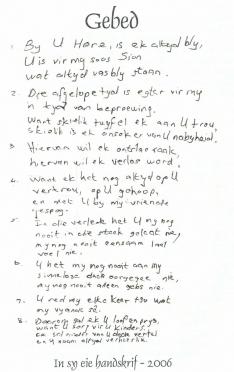 Gebed
1. By U Here, is ek altyd bly,
U is vir my soos Sion
wat altyd vasbly staan.
2. Die afgelope tyd is egter vir my
'n tyd van beproewing.
Want skielik twyfel ek aan U trou,
skielik is ek onseker van U nabyheid.
3. Hiervan wil ek ontslae raak,
hiervan wil ek verlos word.
4. Want ek het nog altyd op U
vertrou, op U gehoop,
en met U by my vriende
gespog.
5. In die verlede het U my nog
nooit in die steek gelaat nie,
my nog nooit eensaam laat
voel nie.
6. U het my nog nooit aan my
sinnelose oorgegee nie,
my nog nooit alleen gelos nie.
7. U red my elke keer van
my vyande se.
8. Daarom sal ek U loof en prys,
want U sorg vir U kinders.
En sal ek U
en U naam altyd verheerlik.
In sy eie handskrif - 2006